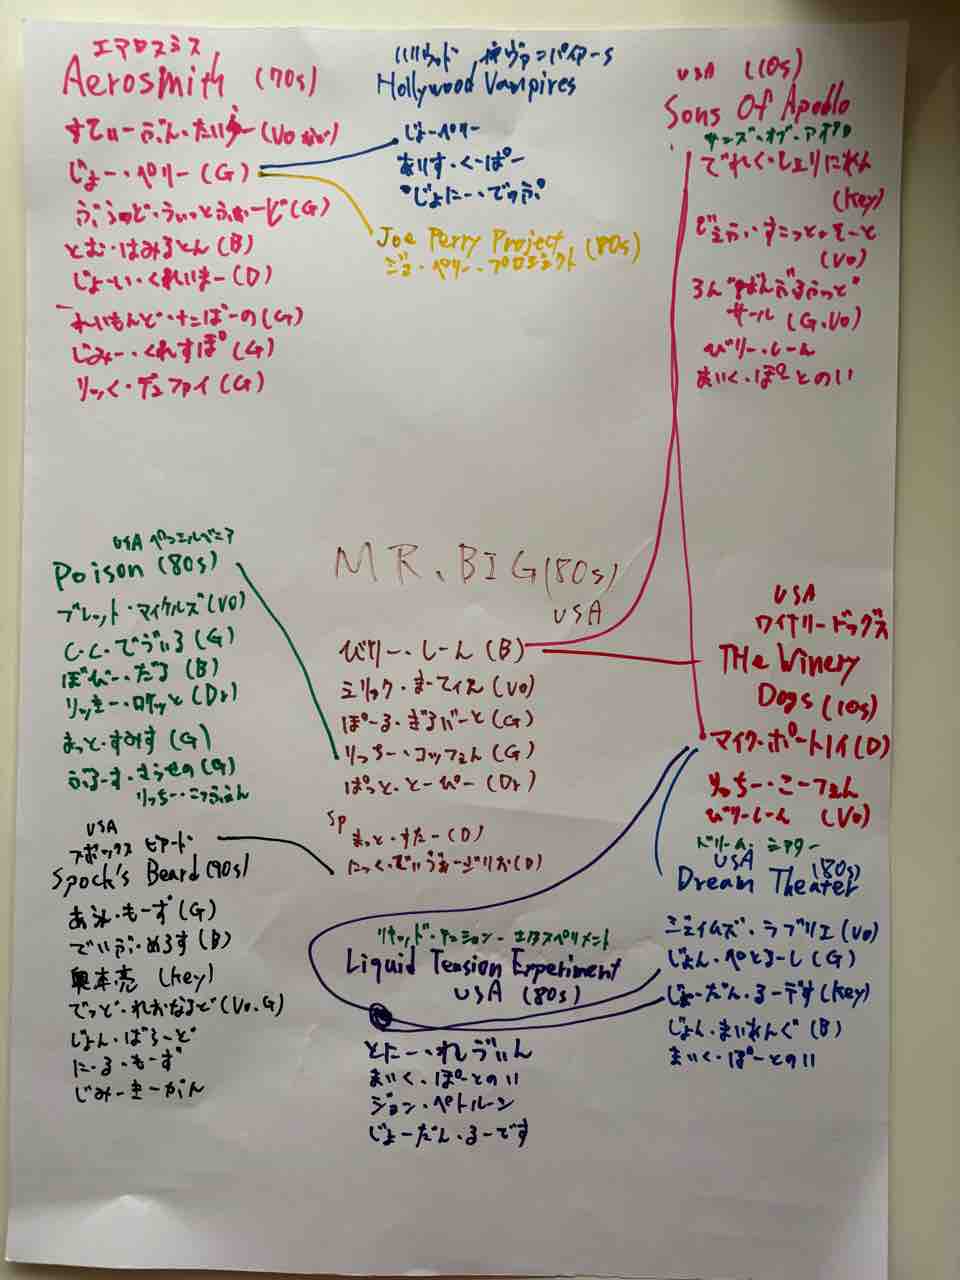 エアロスミス
Aerosmith (70s)
すてぃーぶん・たいらー (Vo
じょー・ぺリー (G)
ぶらっど・うぃっとふぉーど (G)
とむ・はみるとん (B)
じょーい・くれいまー (D)
れいもんど・たばーの (G)
じみー・くれすぽ (G)
リっく・デュファイ (G)
ハリウッド ヴァンパイアーS
Hollywood Vampires
じょーペリー
ありす・くーぱー
じょにー・でっぷ
Joe Perry Project (80s)
ジョー・ペリー・プロジェクト
USA (10s)
Sons Of Apollo
サンズ・オブ・アポロ
でれく・しェりにあん
(Key)
じぇふ・すこっと・そーと
(Vo)
ろん"ばんぶるふっと"
サール (G.Vo)
びリー・しーん
まいく・ぽーとのい
USA ペンシルベニア
Poison (80s)
ブレット・マイケルズ (Vo)
C.C.でゔぃる (G)
ぼびー・だる (B)
リっきー・ロケッと (Dr)
まっと・すみす (G)
ぶるーす・さらせの (G)
りっちー・こっつぇん
MR.BIG (80s)
USA
びりー・しーん (B)
エリック・まーてぃん (Vo)
ぽーる・ぎるバーと (G)
りっちー・コッツェん (G)
ぱっと・とーぴー (Dr)
Sp
まっと・すたー (D)
にっく・でぃゔぁーじりお (D)
USA
ワイナリードッグズ
THe Winery
Dogs (10s)
マイク・ポートノイ (D)
りっちー・こーつぇん
びりーしーん (Vo)
USA
スポックス ビアード
Spock's Beard (90s)
あらん・もーず (G)
でいぶ・めろす (B)
奥本亮 (Key)
てっど・れおなるど (Vo.G)
じょん・ばらーど
にーる・もーず
じみー・きーがん
ドリーム・シアター
USA
Dream Theater (80s)
ジェイムズ・ラブリエ (Vo)
じょん・ぺとるーし (G)
じょーだん・るーデす (Key)
じょん・まいあんぐ (B)
まいく・ぽーとのい
リキッド・テンション・エクスペリメント
Liquid Tension Experiment
USA (80s)
とにー・れゔぃん
まいく・ぽーとのい
ジョン・ペトルーシ
じょーだん・るーです